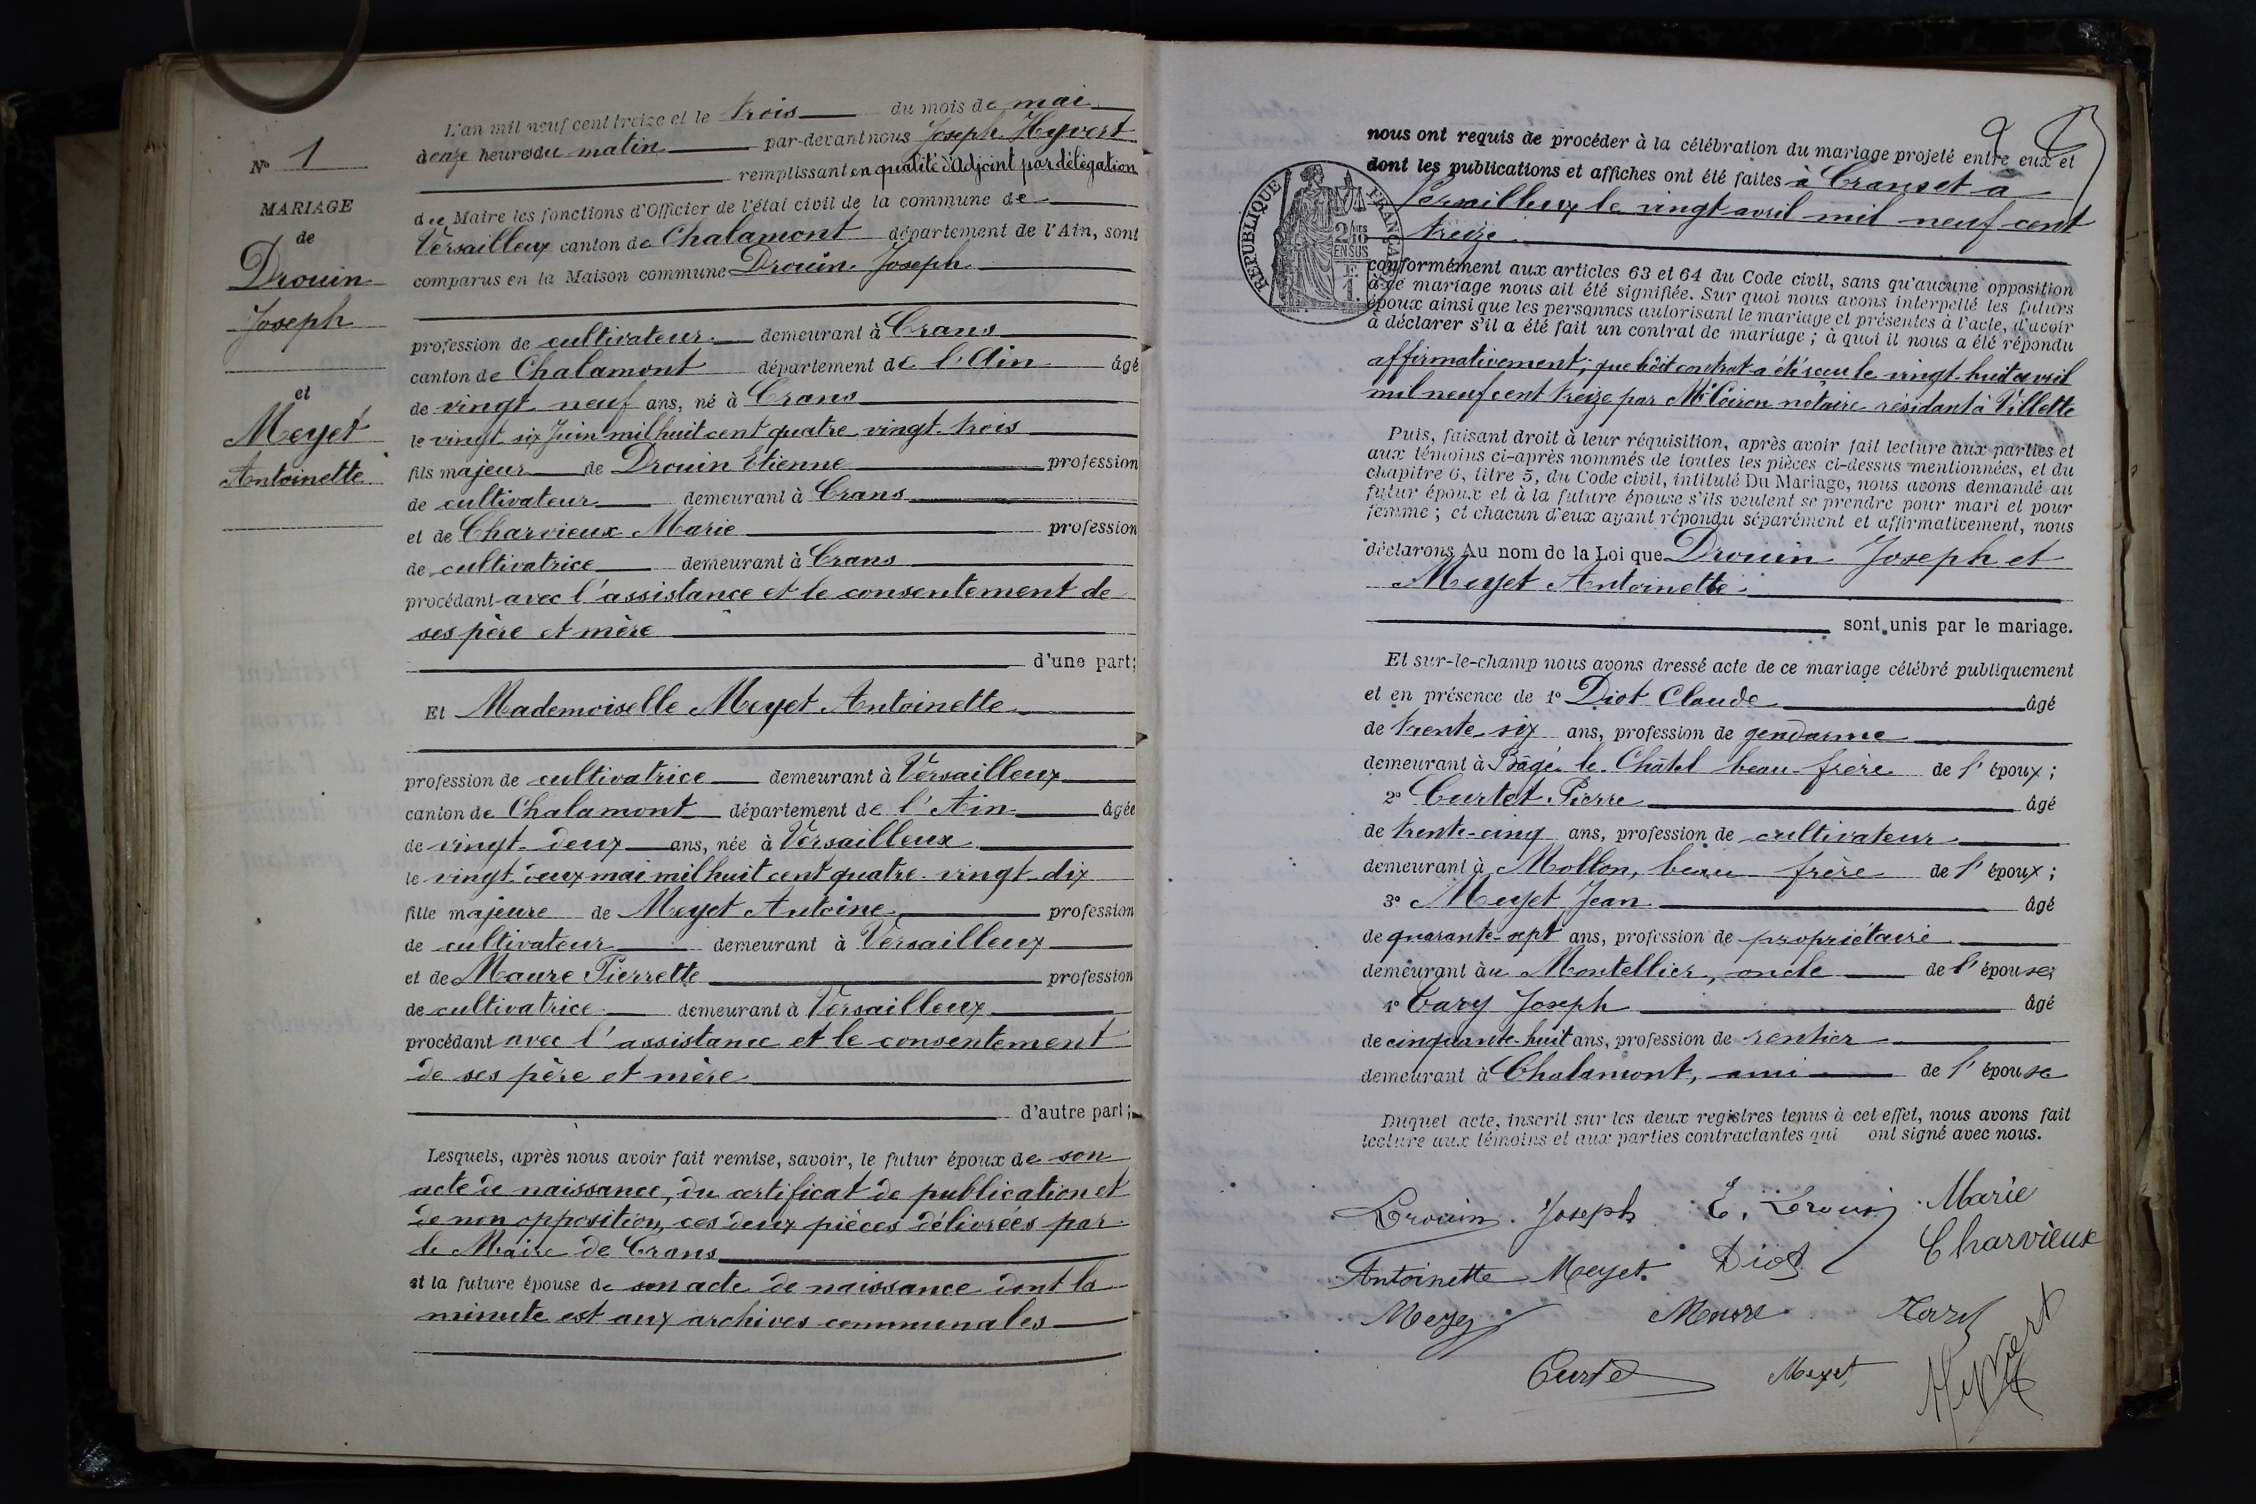 N° 1
MARIAGE
de
Drouin
Joseph
et
Meyet
Antoinette
L'an mil neuf cent treize et le trois du mois de mai
à onze heures du matin par-devant nous Joseph Hyvert
remplissant en qualité d'adjoint par délégation
du Maire les fonctions d'Officier de l'état civil de la commune de
Versailleux canton de Chalamont département de l'Ain, sont
comparus en la Maison commune Drouin Joseph
profession de cultivateur demeurant à Crans
canton de Chalamont département de l'Ain âgé
de vingt neuf ans, né à Crans
le vingt six Juin mil huit cent quatre vingt trois
fils majeur de Drouin Etienne profession
de cultivateur demeurant à Crans
et de Charvieux Marie profession
de cultivatrice demeurant à Crans
procédant avec l'assistance et le consentement de
ses père et mère
d'une part;
Et Mademoiselle Meyet Antoinette
profession de cultivatrice demeurant à Versailleux
canton de Chalamont département de l'Ain âgée
de vingt-deux ans, née à Versailleux
le vingt-deux mai mil huit cent quatre-vingt-dix
fille majeure de Meyet Antoine profession
de cultivateur demeurant à Versailleux
et de Maure Pierrette profession
de cultivatrice demeurant à Versailleux
procédant avec l'assistance et le consentement
de ses père et mère
d'autre part;
Lesquels, après nous avoir fait remise, savoir, le futur époux de son
acte de naissance, du certificat de publication et
de non opposition, ces deux pièces délivrées par
le Maire de Crans
et la future épouse de son acte de naissance dont la
minute est aux archives communales
2
nous ont requis de procéder à la célébration du mariage projeté entre eux et
dont les publications et affiches ont été faites à Crans et à
Versailleux le vingt avril mil neuf cent
treize
RÉPUBLIQUE FRANÇAISE
2/10 EN SUS
conformément aux articles 63 et 64 du Code civil, sans qu'aucune opposition
à ce mariage nous ait été signifiée. Sur quoi nous avons interpellé les futurs
époux ainsi que les personnes autorisant le mariage et présentes à l'acte, d'avoir
à déclarer s'il a été fait un contrat de mariage ; à quoi il nous a été répondu
affirmativement; que ledit contrat a été reçu le vingt-huit avril
mil neuf cent treize par Me notaire résidant à Villette
Puis, faisant droit à leur réquisition, après avoir fait lecture aux parties et
aux témoins ci-après nommés de toutes les pièces ci-dessus mentionnées, et du
chapitre 6, titre 5, du Code civil, intitulé Du Mariage, nous avons demandé au
futur époux et à la future épouse s'ils veulent se prendre pour mari et pour
femme ; et chacun d'eux ayant répondu séparément et affirmativement, nous
déclarons Au nom de la Loi que Drouin Joseph et
Meyet Antoinette
sont unis par le mariage.
Et sur-le-champ nous avons dressé acte de ce mariage célébré publiquement
et en présence de 1° Diot Claude âgé
de trente-six ans, profession de gendarme
demeurant à Bâgé-le-Châtel beau-frère de l'époux ;
2° Curtet Pierre âgé
de trente-cinq ans, profession de cultivateur
demeurant à Mollon, beau frère de l'époux ;
3° Meyet Jean âgé
de quarante-sept ans, profession de propriétaire
demeurant au Montellier, oncle de l'épouse;
4° Cary Joseph âgé
de cinquante-huit ans, profession de rentier
demeurant à Chalamont, ami de l'épouse
Duquel acte, inscrit sur les deux registres tenus à cet effet, nous avons fait
lecture aux témoins et aux parties contractantes qui ont signé avec nous.
Drouin Joseph E. Drouin Marie
Charvieux
Antoinette Meyet Diot
Meyet Maure
Curtet Meyet Hyvert